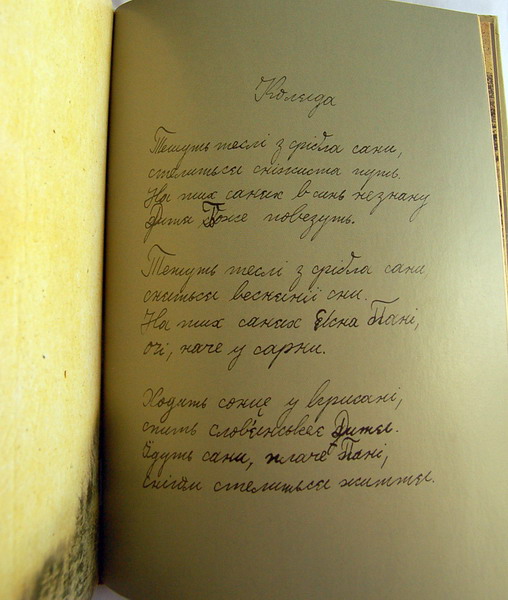 Коляда
Тешуть теслі з срібла сани,
стелиться сніжиста путь.
На тих санях в синь незнану
Дитя Боже повезуть.
Тешуть теслі з срібла сани
сняться веснянії сни.
На тих санях Ясна Пані,
очі, наче у сарни.
Ходить сонце у крисані,
спить слов'янськеє Дитя.
Їдуть сани, плаче Пані,
снігом стелиться життя.